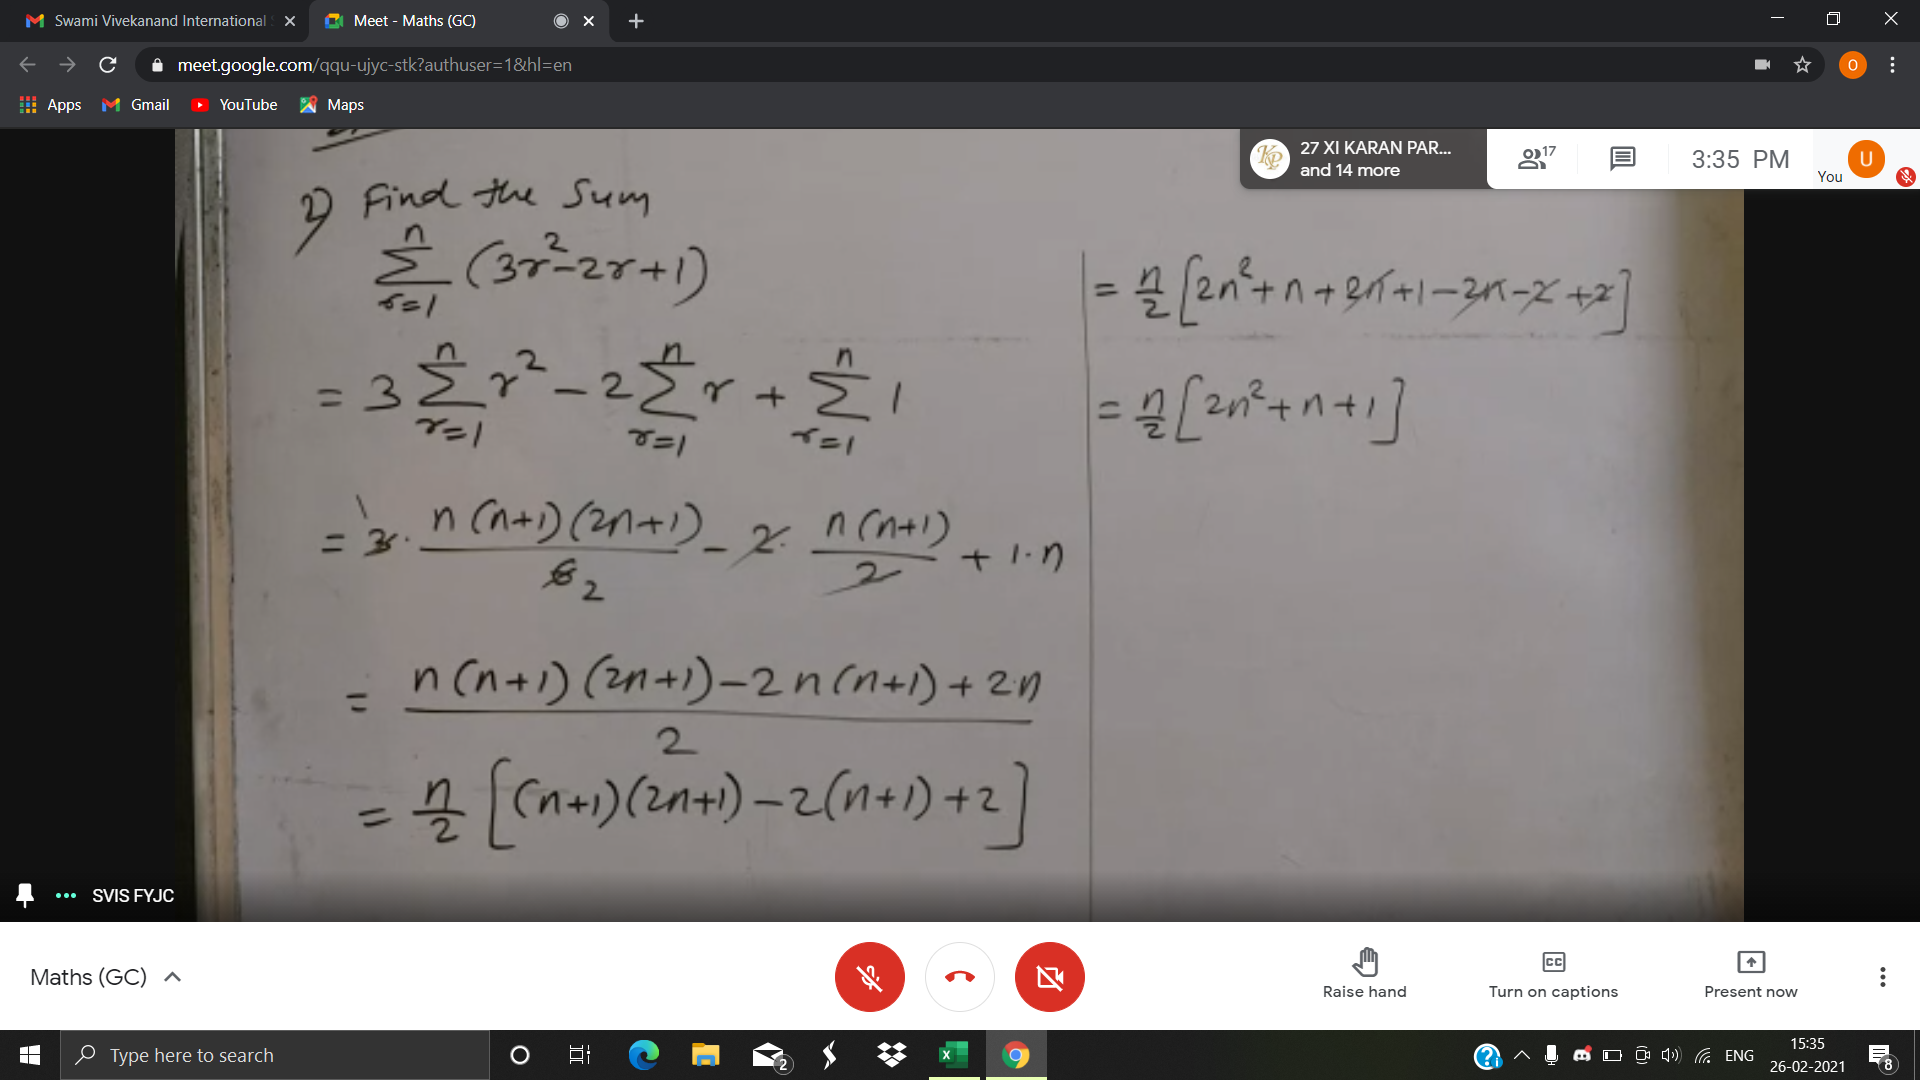 Swami Vivekanand International
Meet - Maths (GC)
meet.google.com/qqu-ujyc-stk?authuser=1&hl=en
O
Apps
Gmail
YouTube
Maps
KP
27 XI KARAN PAR...
and 14 more
17
3:35 PM
You
U
2) Find the Sum
n
Σ (3r²-2r+1)
r=1
= 3 Σⁿᵣ₌₁ r² - 2 Σⁿᵣ₌₁ r + Σⁿᵣ₌₁ 1
= 3. n(n+1)(2n+1)/6 - 2. n(n+1)/2 + 1.n
1
2
= n(n+1)(2n+1)-2n(n+1)+2n
2
= n/2 [(n+1)(2n+1)-2(n+1)+2]
= n/2 [2n²+n+2n+1-2n-2+2]
= n/2 [2n²+n+1]
SVIS FYJC
Maths (GC)
Raise hand
CC
Turn on captions
Present now
Type here to search
2
ENG
15:35
26-02-2021
8